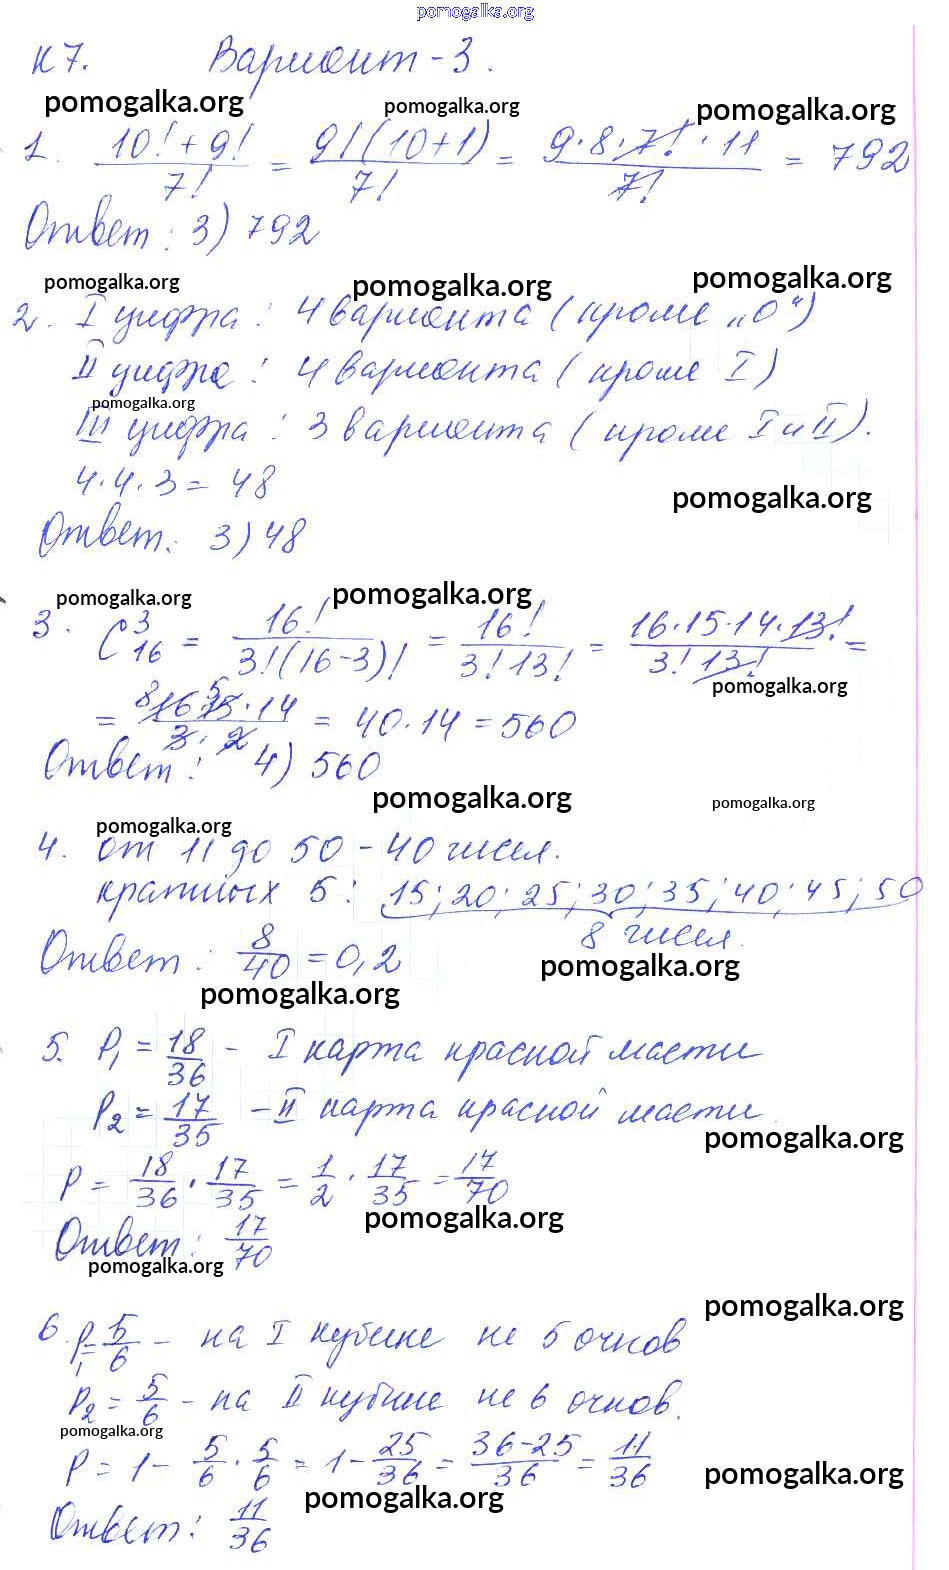 pomogalka.org
К7. Вариант-3.
pomogalka.org pomogalka.org pomogalka.org
1. (10!+9!)/7! = 9!(10+1)/7! = 9·8·7!·11/7! = 792
Ответ: 3) 792
pomogalka.org pomogalka.org pomogalka.org
2. I цифра: 4 варианта (кроме „0“)
II цифра: 4 варианта (кроме I)
pomogalka.org
III цифра: 3 варианта (кроме I и II).
4·4·3 = 48
pomogalka.org
Ответ: 3) 48
pomogalka.org pomogalka.org
3. C³₁₆ = 16!/3!(16-3)! = 16!/3!13! = 16·15·14·13!/3!13! =
pomogalka.org
= 8 16 5 15·14/3·2 = 40·14 = 560
Ответ: 4) 560
pomogalka.org pomogalka.org
pomogalka.org
4. от 11 до 50 - 40 чисел.
кратных 5: 15; 20; 25; 30; 35; 40; 45; 50
8 чисел.
Ответ: 8/40 = 0,2
pomogalka.org
pomogalka.org
5. P₁ = 18/36 - I карта красной масти
P₂ = 17/35 - II карта красной масти.
pomogalka.org
P = 18/36 · 17/35 = 1/2 · 17/35 = 17/70
pomogalka.org
Ответ: 17/70
pomogalka.org
pomogalka.org
6. P₁ = 5/6 - на I кубике не 5 очков
P₂ = 5/6 - на II кубике не 6 очков.
pomogalka.org
P = 1 - 5/6 · 5/6 = 1 - 25/36 = 36-25/36 = 11/36
pomogalka.org
pomogalka.org
Ответ: 11/36